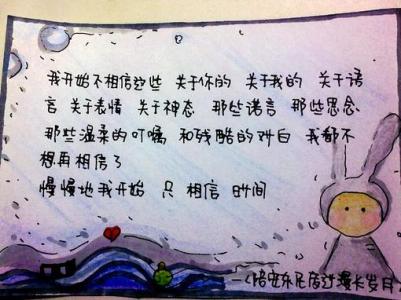 我开始不相信这些 关于你的 关于我的 关于语
言 关于表情 关于神态 那些诺言 那些思念
那些温柔的叮嘱 和残酷的对白 我都不
想再相信了
慢慢地我开始 只 相信 时间
——《陪安东尼度过漫长岁月》